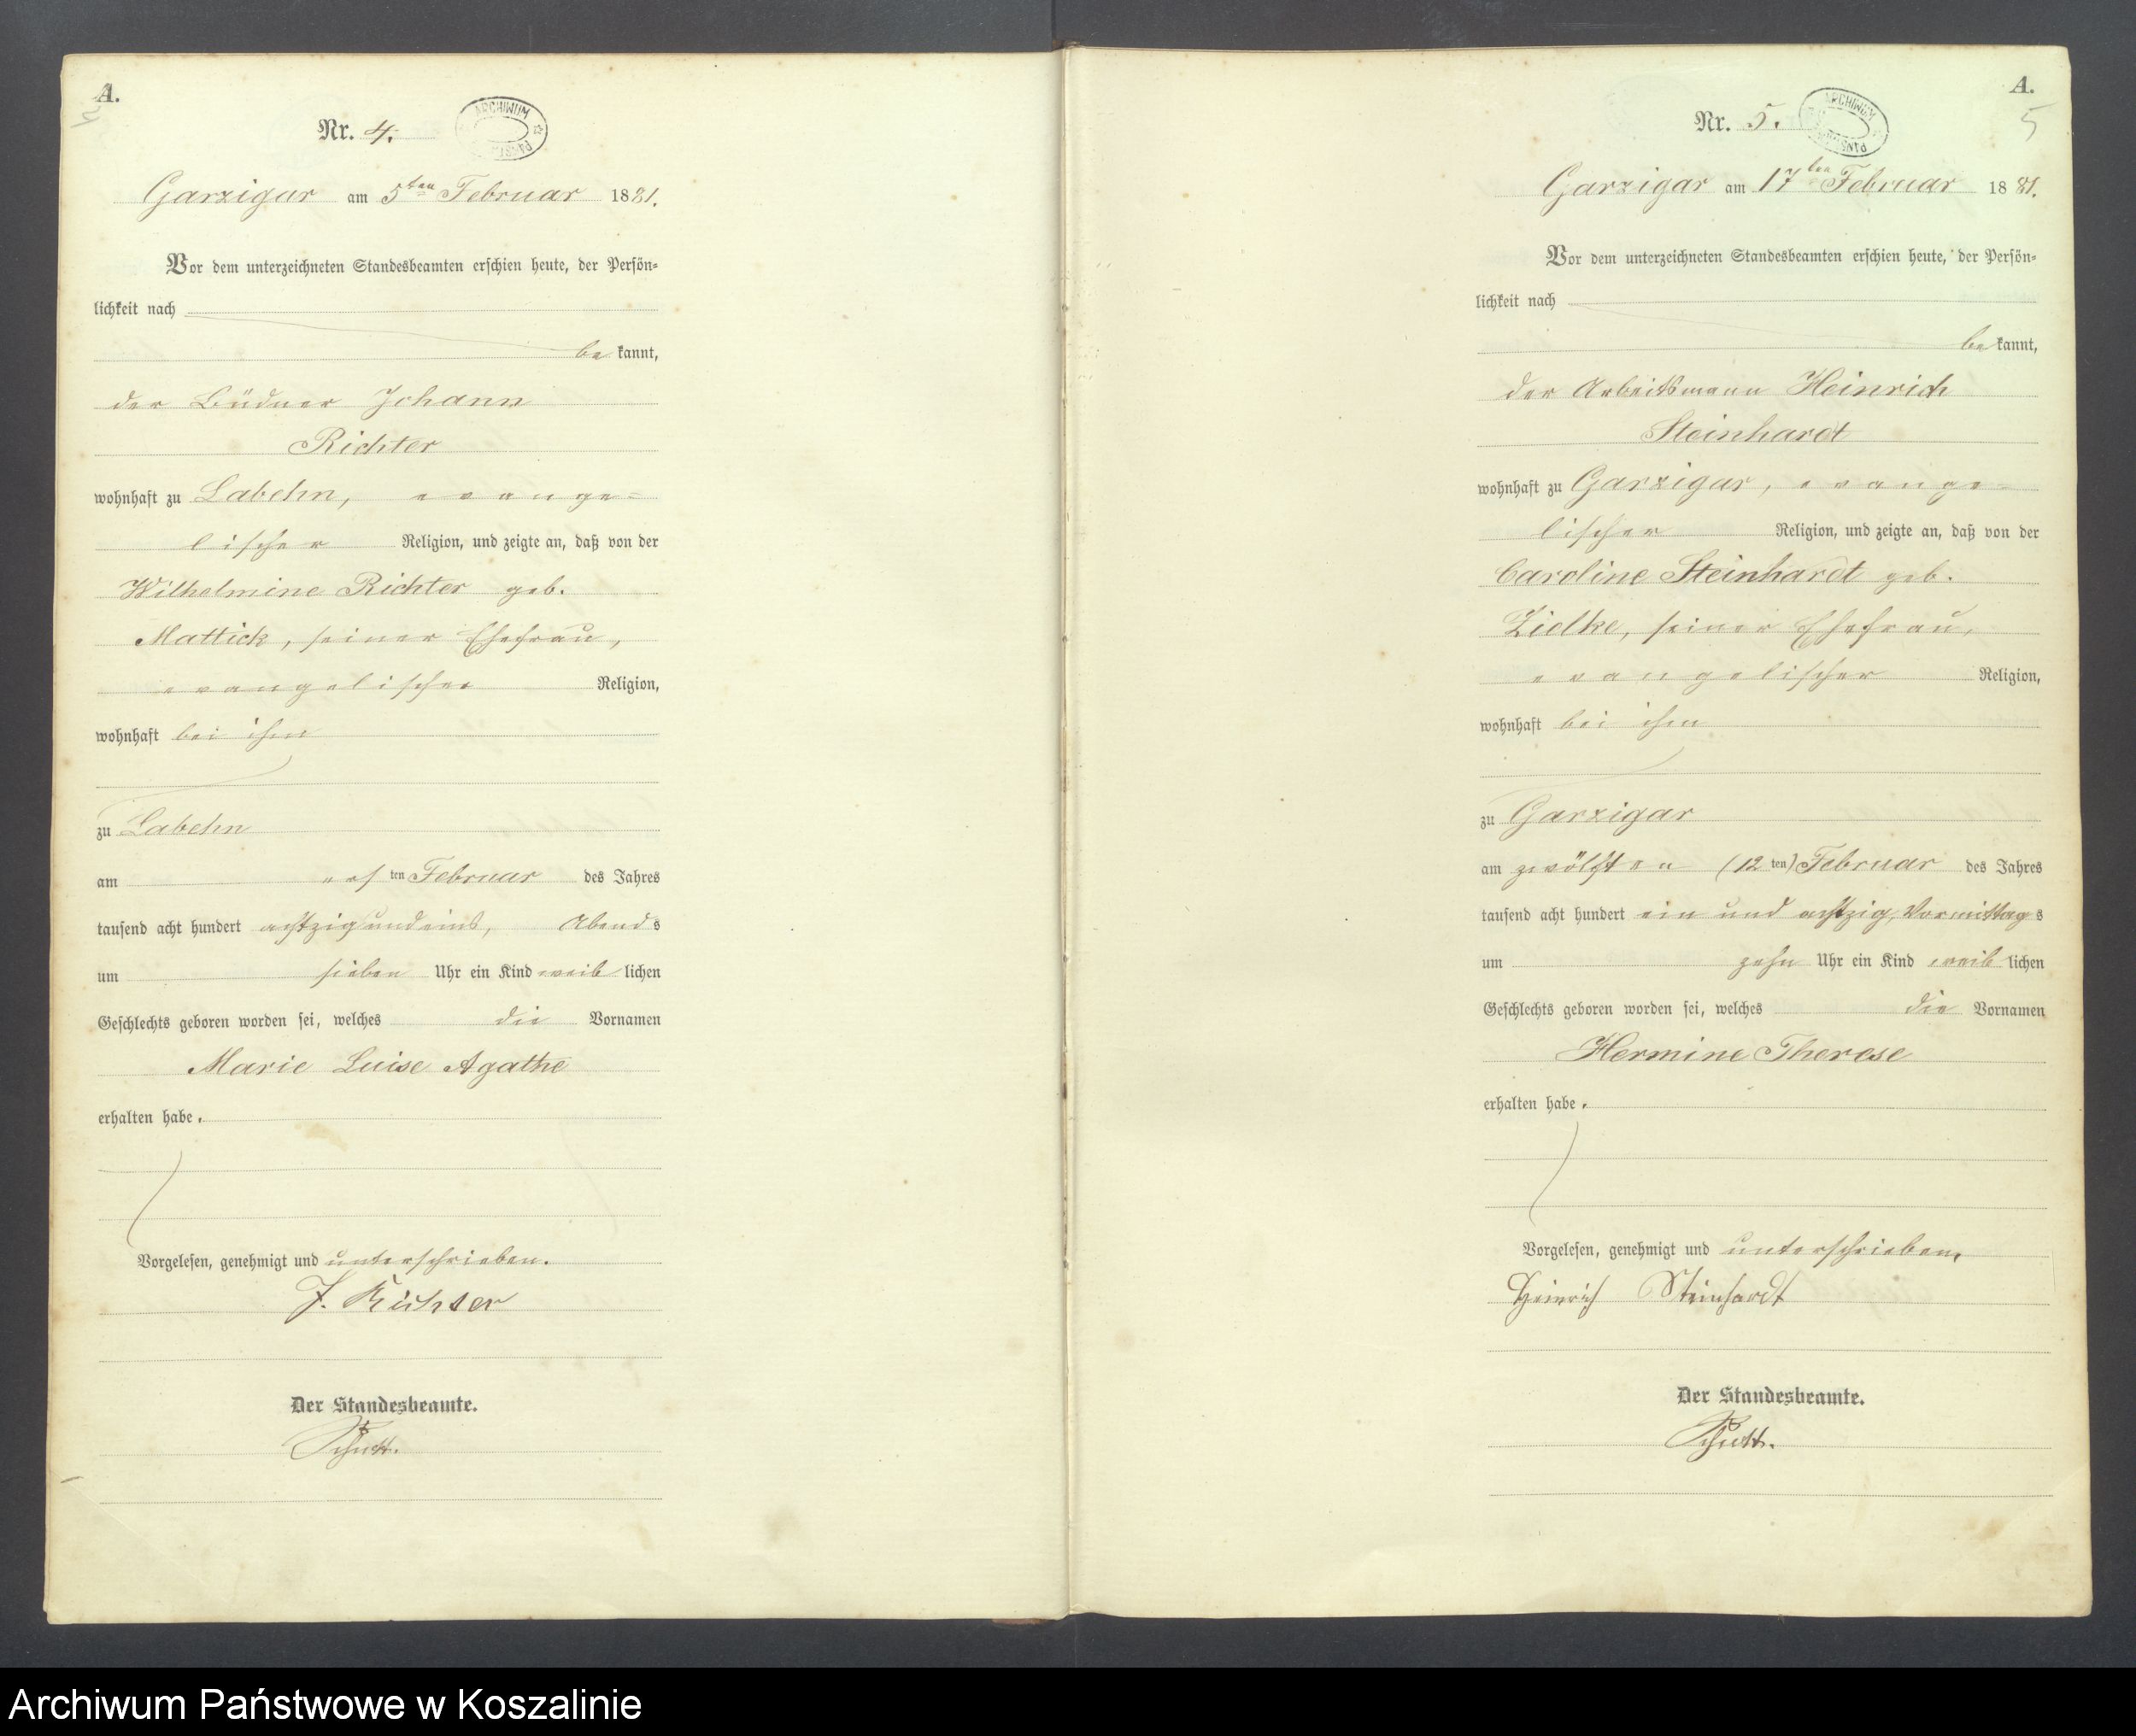 A.
4
Nr. 4.
ARCHIWUM
Garzigar am 5ten Februar 1881.
Vor dem unterzeichneten Standesbeamten erschien heute, der Persön-
lichkeit nach
bekannt,
der Büdner Johann
Richter
wohnhaft zu Labehn, evange-
lischer Religion, und zeigte an, daß von der
Wilhelmine Richter geb.
Mattick, seiner Ehefrau,
evangelischer Religion,
wohnhaft bei ihm
zu Labehn
am ersten Februar des Jahres
tausend acht hundert achtzigundeins, Abends
um sieben Uhr ein Kind weiblichen
Geschlechts geboren worden sei, welches die Vornamen
Marie Luise Agathe
erhalten habe.
Vorgelesen, genehmigt und unterschrieben.
J. Richter
Der Standesbeamte.
A.
5
Nr. 5.
ARCHIWUM
Garzigar am 17ten Februar 1881.
Vor dem unterzeichneten Standesbeamten erschien heute, der Persön-
lichkeit nach
bekannt,
der Arbeitsmann Heinrich
Steinhardt
wohnhaft zu Garzigar, evange-
lischer Religion, und zeigte an, daß von der
Caroline Steinhardt geb.
Zielke, seiner Ehefrau,
evangelischer Religion,
wohnhaft bei ihm
zu Garzigar
am zwölften (12ten) Februar des Jahres
tausend acht hundert ein und achtzig, Vormittags
um zehn Uhr ein Kind weiblichen
Geschlechts geboren worden sei, welches die Vornamen
Hermine Therese
erhalten habe.
Vorgelesen, genehmigt und unterschrieben,
Heinrich Steinhardt
Der Standesbeamte.
Archiwum Państwowe w Koszalinie